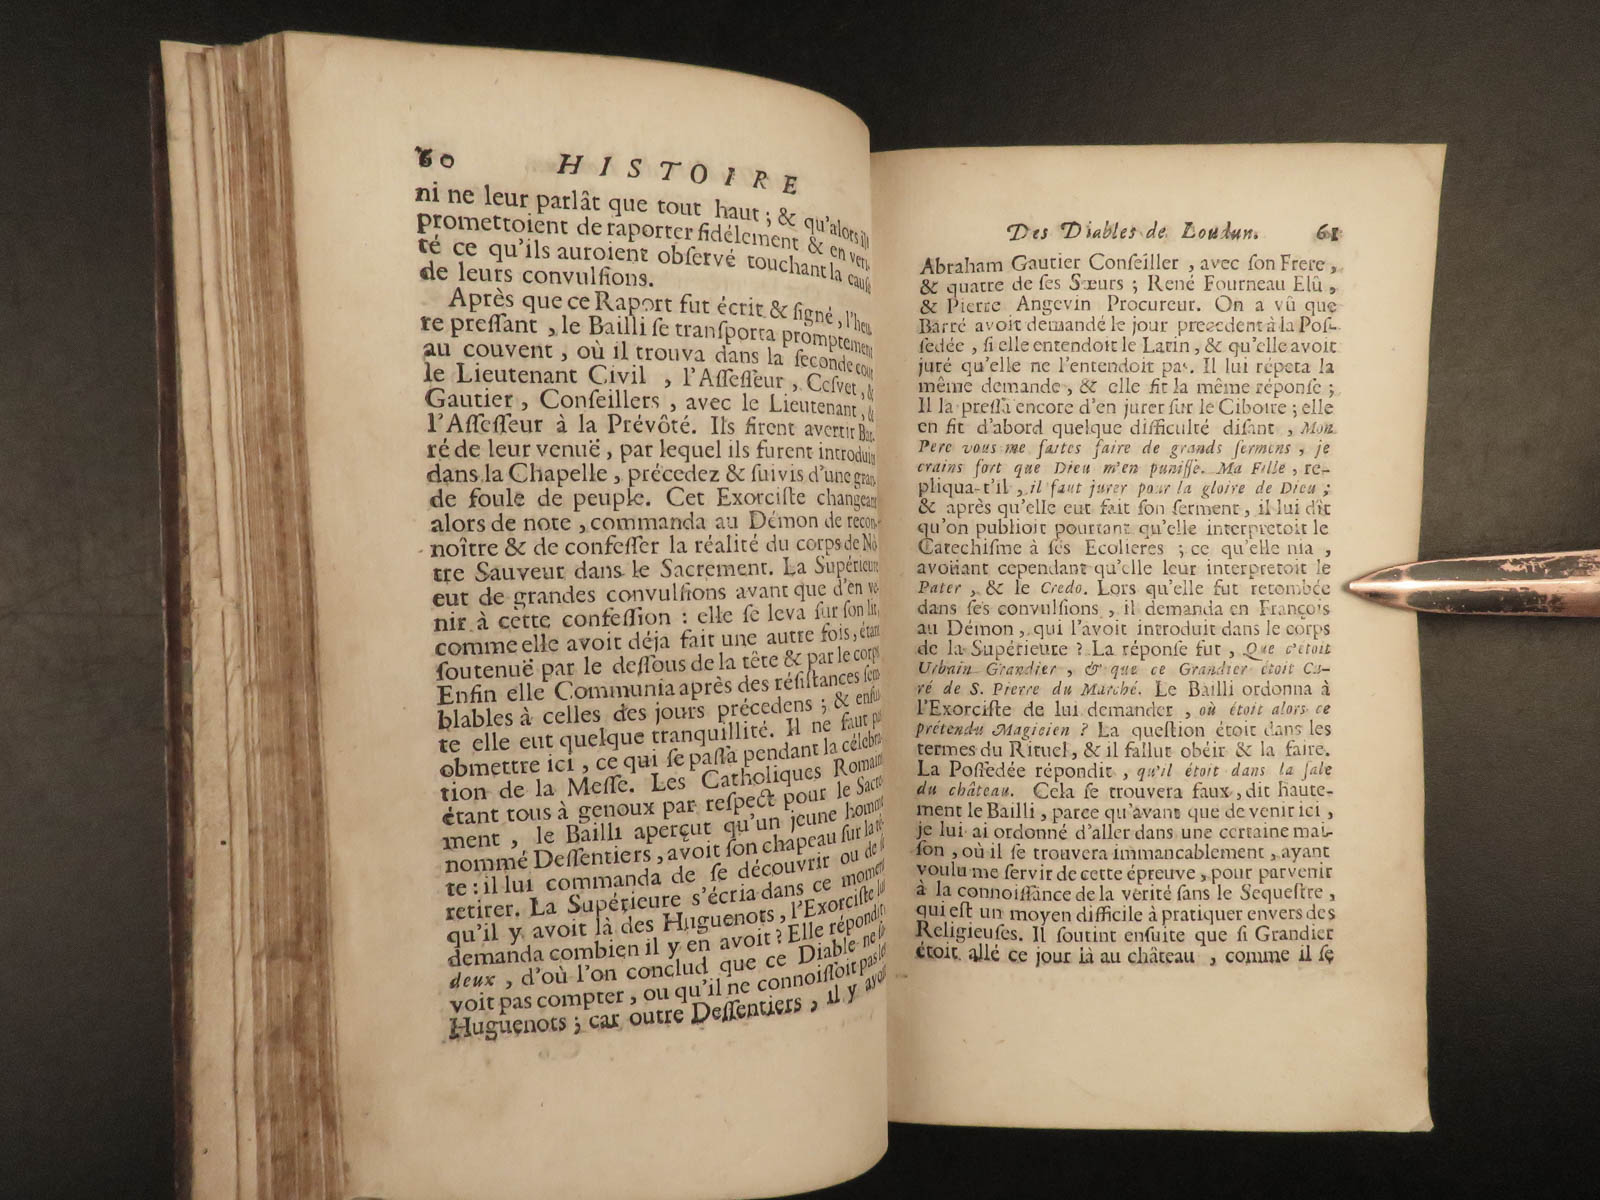 60 HISTOIRE
ni ne leur parlât que tout haut ; & qu'alors ils
promettoient de raporter fidélement & en veri-
té ce qu'ils auroient obſervé touchant la cauſe
de leurs convulſions.
Après que ce Raport fut écrit & ſigné, l'heu-
re preſſant , le Bailli ſe tranſporta promptement
au couvent , où il trouva dans la ſeconde cour
le Lieutenant Civil , l'Aſſeſſeur , Ceſvet , &
Gautier , Conſeillers , avec le Lieutenant , &
l'Aſſeſſeur à la Prévôté. Ils firent avertir Bar-
ré de leur venuë , par lequel ils furent introduits
dans la Chapelle , précedez & ſuivis d'une gran-
de foule de peuple. Cet Exorciſte changeant
alors de note , commanda au Démon de recon-
noître & de confeſſer la réalité du corps de Nô-
tre Sauveur dans le Sacrement. La Supérieure
eut de grandes convulſions avant que d'en ve-
nir à cette confeſſion : elle ſe leva ſur ſon lit,
comme elle avoit déja fait une autre fois, étant
ſoutenuë par le deſſous de la tête & par le corps
Enfin elle Communia après des réſiſtances ſem-
blables à celles des jours précedens ; & enſui-
te elle eut quelque tranquillité. Il ne faut pas
obmettre ici , ce qui ſe paſſa pendant la célébra-
tion de la Meſſe. Les Catholiques Romains
étant tous à genoux par reſpect pour le Sacre-
ment , le Bailli aperçut qu'un jeune homme
nommé Deſſentiers , avoit ſon chapeau ſur la tê-
te : il lui commanda de ſe découvrir ou de ſe
retirer. La Supérieure s'écria dans ce moment
qu'il y avoit là des Huguenots , l'Exorciſte lui
demanda combien il y en avoit ? Elle répondit,
deux , d'où l'on conclud que ce Diable ne ſa-
voit pas compter , ou qu'il ne connoiſſoit pas les
Huguenots ; car outre Deſſentiers , il y avoit
Des Diables de Loudun. 61
Abraham Gautier Conſeiller , avec ſon Frere ,
& quatre de ſes Sœurs ; René Fourneau Elû ,
& Pierre Angevin Procureur. On a vû que
Barré avoit demandé le jour precedent à la Poſ-
ſedée , ſi elle entendoit le Latin , & qu'elle avoit
juré qu'elle ne l'entendoit pas. Il lui répeta la
même demande , & elle fit la même réponſe ;
Il la preſſa encore d'en jurer ſur le Ciboire ; elle
en fit d'abord quelque difficulté diſant , Mon
Pere vous me faites faire de grands ſermens , je
crains fort que Dieu m'en puniſſe. Ma Fille , re-
pliqua-t'il , il faut jurer pour la gloire de Dieu ;
& après qu'elle eut fait ſon ſerment , il lui dit
qu'on publioit pourtant qu'elle interpretoit le
Catechiſme à ſes Ecolieres ; ce qu'elle nia ,
avoüant cependant qu'elle leur interpretoit le
Pater , & le Credo. Lors qu'elle fut retombée
dans ſes convulſions , il demanda en François
au Démon , qui l'avoit introduit dans le corps
de la Supérieure ? La réponſe fut , Que c'étoit
Urbain Grandier , & que ce Grandier étoit Cu-
ré de S. Pierre du Marché. Le Bailli ordonna à
l'Exorciſte de lui demander , où étoit alors ce
prétendu Magicien ? La queſtion étoit dans les
termes du Rituel, & il fallut obéir & la faire.
La Poſſedée répondit , qu'il étoit dans la ſale
du château. Cela ſe trouvera faux , dit haute-
ment le Bailli , parce qu'avant que de venir ici ,
je lui ai ordonné d'aller dans une certaine mai-
ſon , où il ſe trouvera immancablement , ayant
voulu me ſervir de cette épreuve , pour parvenir
à la connoiſſance de la vérité ſans le Sequeſtre ,
qui eſt un moyen difficile à pratiquer envers des
Religieuſes. Il ſoutint enſuite que ſi Grandier
étoit allé ce jour là au château , comme il ſe